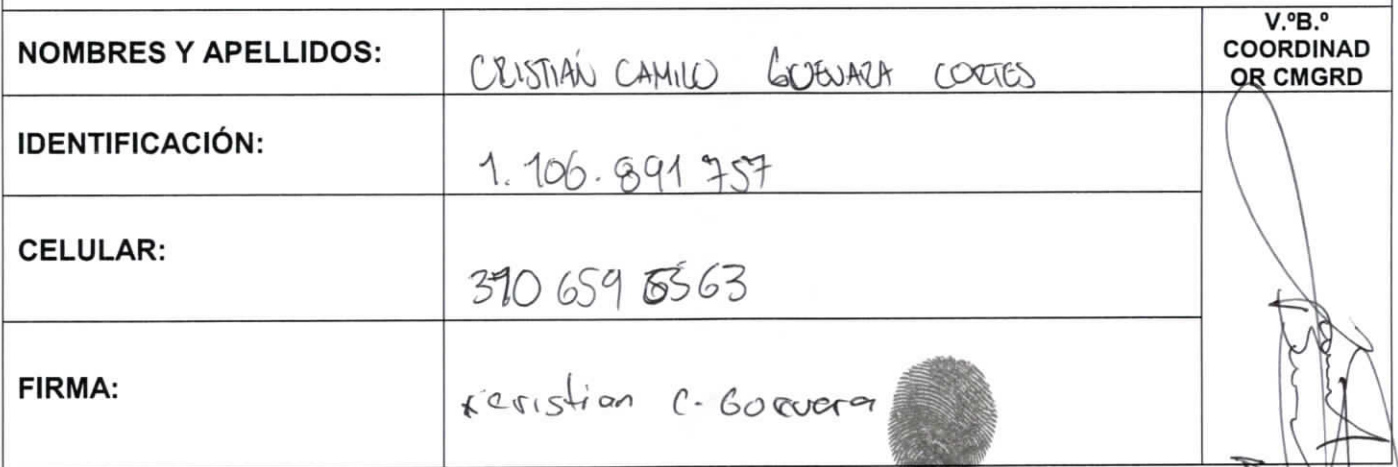 NOMBRES Y APELLIDOS:
CRISTIAN CAMILO GUEVARA CORTES
V.ºB.º
COORDINAD
OR CMGRD
IDENTIFICACIÓN:
1.106.891 757
CELULAR:
310 659 6563
FIRMA:
Cristian C. Guevara